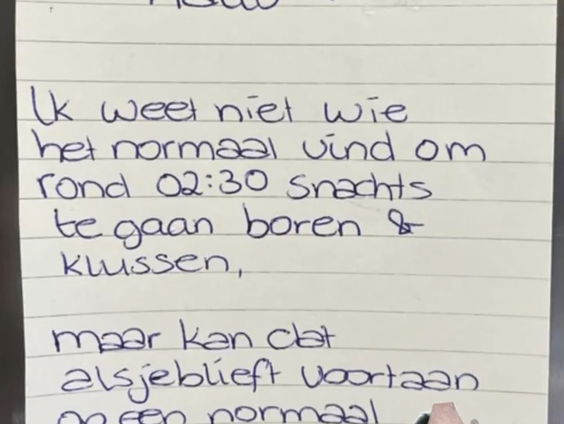 Ik weet niet wie
het normaal vind om
rond 02:30 snachts
te gaan boren &
klussen,
maar kan dat
alsjeblieft voortaan
op een normaal